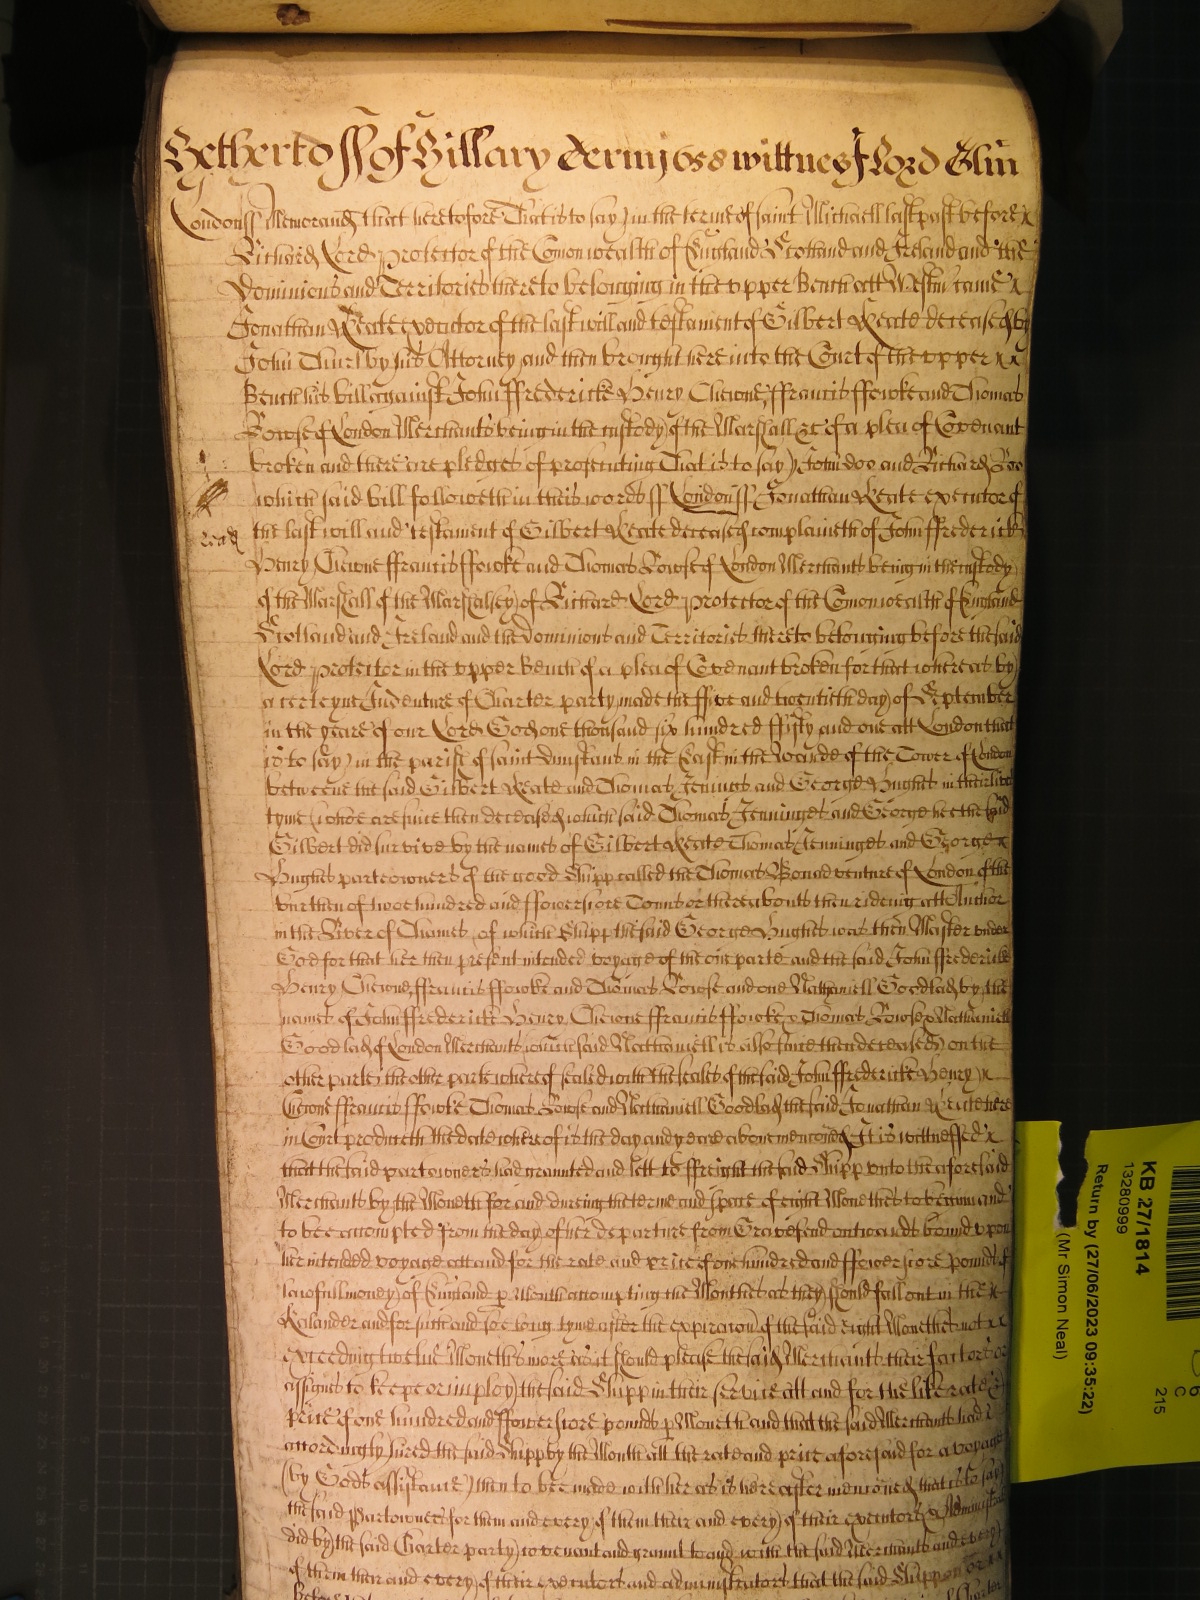 Yetherto ss of Hillary Term 1658 wittnes Lord Glin
London ss Memorand that heretofore That is to say in the terme of saint Michaell last past before
Richard Lord Protector of the Comonwealth of England Scotland and Ireland and the
Dominions and Territories thereto belonging in the upper Bench att Westm came
Jonathan Keate executor of the last will and testament of Gilbert Keate deceased by
John Thurlby his Attorney and then brought here into the Court of the upper
Bench his bill against John ffredericke Henry Cleione ffrancis ffowke and Thomas
Rowse of London Merchants being in the custody of the Marshall &c of a plea of Covenant
broken and there are pledges of prosecuting That is to say John doo and Richard Roo
which said bill followeth in theis words ss London ss Jonathan Keate executor of
the last will and testament of Gilbert Keate deceased complaineth of John ffredericke
read
Henry Cleione ffrancis ffowke and Thomas Rowse of London Merchants being in the custody
of the Marshall of the Marshalsey of Richard Lord Protector of the Comonwealth of England
Scotland and Ireland and the Dominions and Territories thereto belonging before the said
Lord Protector in the upper Bench of a plea of Covenant broken for that whereas by
a certeyne Indenture of Charter party made the ffive and twentieth day of September
in the yeare of our Lord God one thousand six hundred ffifty and one att London that
is to say in the parish of saint Dunstans in the East in the Warde of the Tower of London
betweene the said Gilbert Keate and Thomas Jenings and George Hughes in their life
tyme whoe are since then deceased which said Thomas Jenninges and George hee the said
Gilbert did survive by the names of Gilbert Keate Thomas Jenninges and George
Hughes parte owners of the good Shipp called the Thomas Bonadventure of London of the
burthen of twoe hundred and ffowerscore Tonns or thereabouts then rideing att Anchor
in the River of Thames of which Shipp the said George Hughes was then Master under
God for that her then present intended voyage of the one parte and the said John ffredericke
Henry Cleione ffrancis ffowke and Thomas Rowse and one Nathaniell Goodlad by the
names of John ffredericke Henry Cleione ffrancis ffowke Thomas Rowse Nathaniell
Goodlad of London Merchants which said Nathaniell is also since then deceased on the
other parte the other parte whereof sealed with the seales of the said John ffredericke Henry
Cleione ffrancis ffowke Thomas Rowse and Nathaniell Goodlad the said Jonathan Keate here
in Court produceth the date whereof is the day and yeare above mencioned It is wittnessed
that the said part owners had graunted and lett to ffreight the said Shipp unto the aforesaid
Merchants by the Moneth for and dureing the terme and space of eight Monethes to begin and
to bee accompted from the day of her departure from Gravesend outwards bound upon
her intended voyage att and for the rate and price of one hundred and ffowerscore pounds of
lawfull money of England p Moneth accompting the Monthes as they should fall out in the
Kalander and for such and soe long tyme after the expiracon of the said eight Monethes not
exceeding twelve Moneths more as it should please the said Merchants their factors or
assignes to keepe or imploy the said Shipp in their service att and for the like rate &
price of one hundred and ffowerscore pounds p Moneth and that the said Merchants had
accordingly hired the said Shipp by the Month att the rate and price aforesaid for a voyage
(by Gods assistance) then to bee made with her as is hereafter mencioned that is to say
the said Partowners for them and every of them their and every of their executors & Administrat
did by the said Charter party covenant and graunt to and with the said Merchants and every
of them their and every of their executors and administrators that the said Shipp on or
KB 27/1814
13280999
Return by (27/06/2023 09:35:22)
(Mr Simon Neal)
C
215